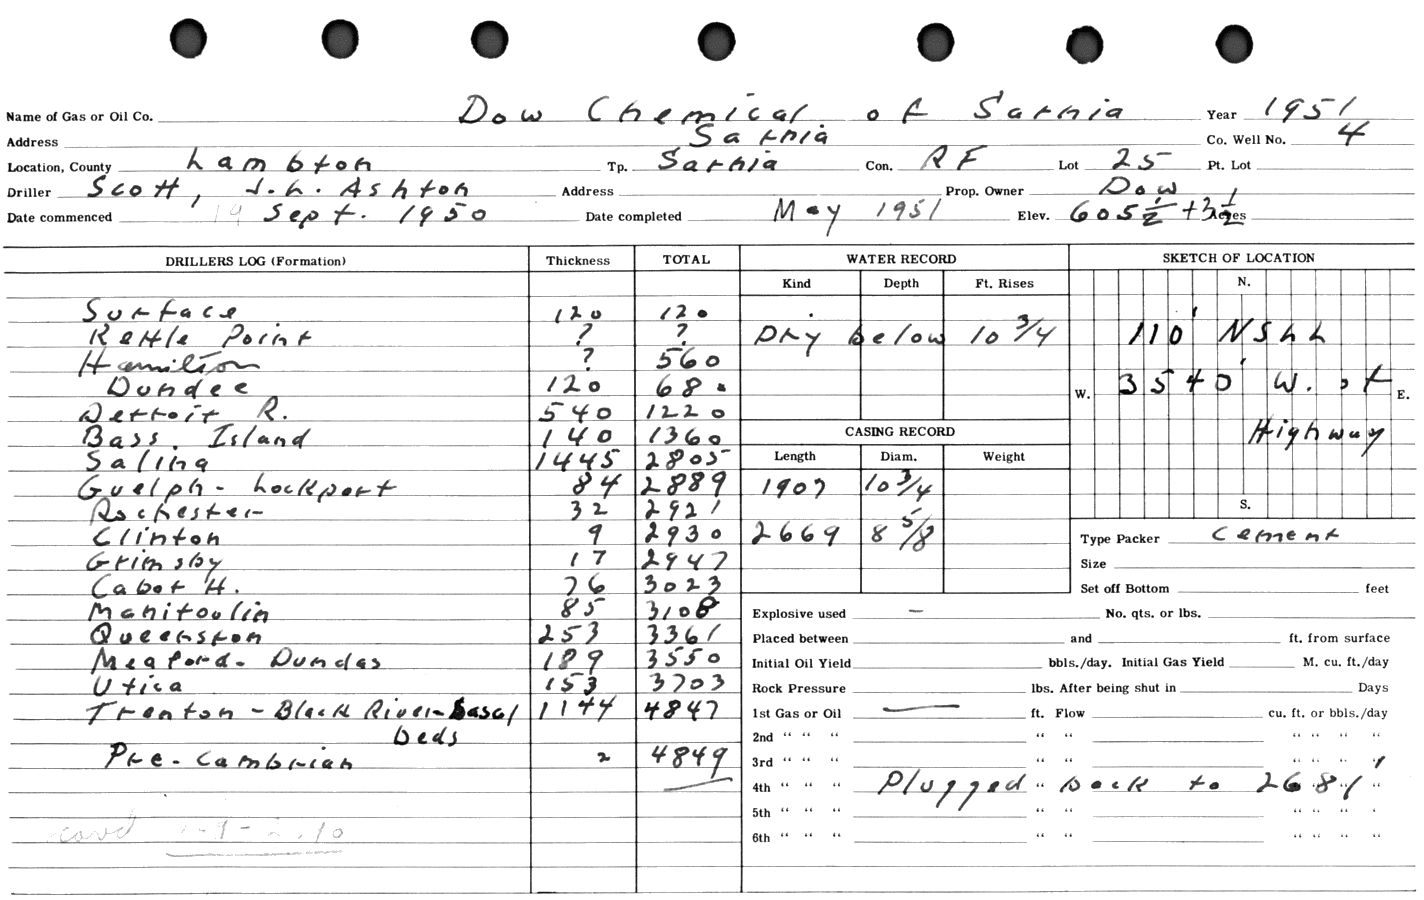 Name of Gas or Oil Co. Dow Chemical of Sarnia Year 1951
Address Sarnia Co. Well No. 4
Location, County Lambton Tp. Sarnia Con. RF Lot 25 Pt. Lot
Driller Scott, J.L. Ashton Address Prop. Owner Dow
Date commenced 19 Sept. 1950 Date completed May 1951 Elev. 605½ +3½ Acres
DRILLERS LOG (Formation) Thickness TOTAL
Surface 120 120
Kettle Point ? ?
Hamilton ? 560
Dundee 120 680
Detroit R. 540 1220
Bass. Island 140 1360
Salina 1445 2805
Guelph - Lockport 84 2889
Rochester 32 2921
Clinton 9 2930
Grimsby 17 2947
Cabot H. 76 3023
Manitoulin 85 3108
Queenston 253 3361
Meaford - Dundas 189 3550
Utica 153 3703
Trenton - Black River - basal 1144 4847
beds
Pre-Cambrian 2 4849
WATER RECORD
Kind Depth Ft. Rises
Dry below 10 3/4
CASING RECORD
Length Diam. Weight
1907 10 3/4
2669 8 5/8
SKETCH OF LOCATION
N.
110' NSLL
W. 3540' W. of E.
Highway
S.
Type Packer Cement
Size
Set off Bottom feet
Explosive used — No. qts. or lbs.
Placed between and ft. from surface
Initial Oil Yield bbls./day. Initial Gas Yield M. cu. ft./day
Rock Pressure lbs. After being shut in Days
1st Gas or Oil — ft. Flow cu. ft. or bbls./day
2nd “ “ “ “ “ “ “ “ “
3rd “ “ “ “ “ “ “ “ “
4th “ “ “ Plugged “ back to 2681'
5th “ “ “ “ “ “ “ “ “
6th “ “ “ “ “ “ “ “ “